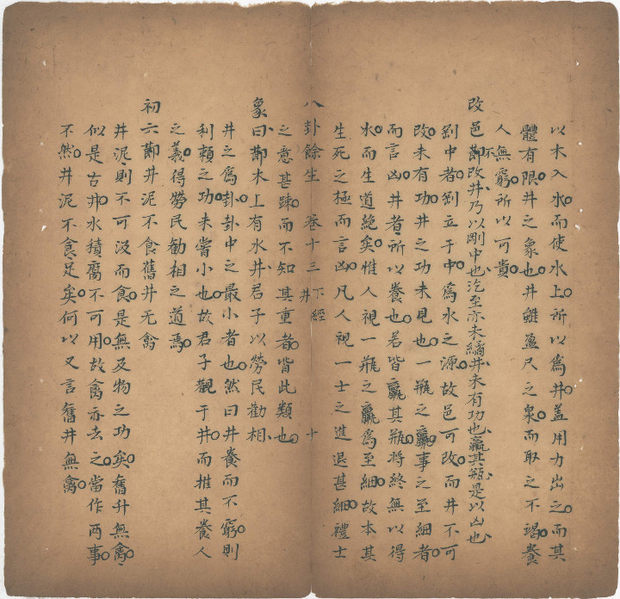 以木入水而使水上所以為井蓋用力出之而其
體有限井之象也井雖盈尺之泉而取之不竭養
人無窮所以可貴
改邑節不改井乃以剛中也汔至亦未繘井未有功也羸其瓶是以凶也
剛中者剛立于中為水之源故邑可改而井不可
改未有功井之功未見也一瓶之羸事之至細者
而言凶井者所以養也若皆羸其瓶將終無以得
水而生道絕矣惟人視一瓶之羸為至細故本其
生死之極而言凶凡人視一士之進退甚細禮士
八卦餘生 卷十三 下經 井 十
之意甚疎而不知其重者皆此類也
象曰節木上有水井君子以勞民勸相
井之為卦卦中之最小者也然曰井養而不窮則
利賴之功未嘗小也故君子觀于井而推其養人
之義得勞民勸相之道焉
初六節井泥不食舊井无禽
井泥則不可汲而食是無及物之功矣舊井無禽
似是古井水積腐不可用故禽亦去之當作兩事
不然井泥不食足矣何以又言舊井無禽